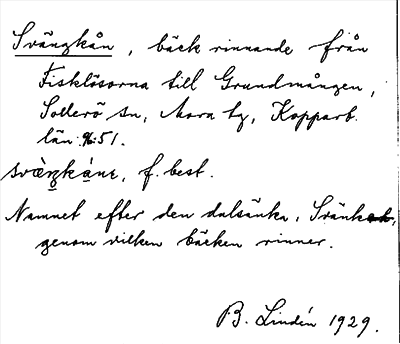 Svängkån, bäck rinnande från
Fisklösorna till Grundmången,
Sollerö sn, Mora tg, Kopparb.
län 96:51.
svæ̀ŋkånę, f. best.
Namnet efter den dalsänka,
genom vilken bäcken rinner.
B. Lindén 1929.